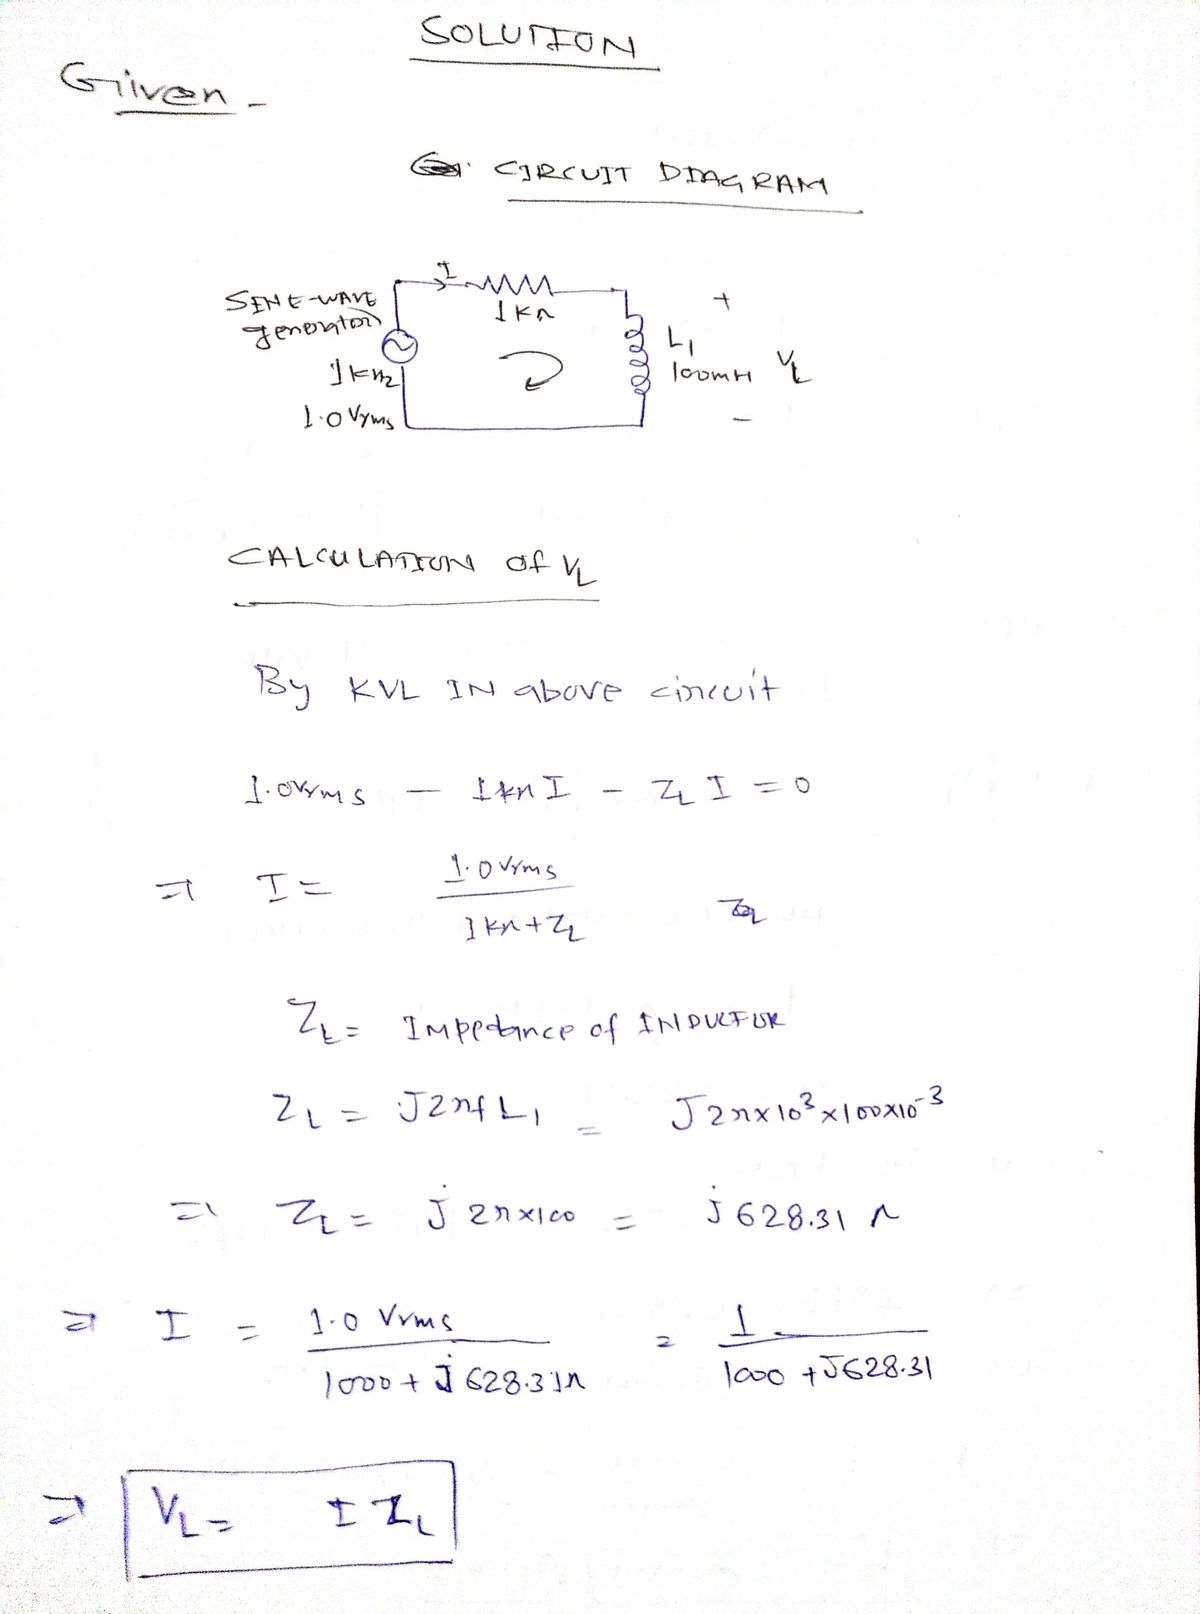 SOLUTION
Giiven -
CIRCUIT DIAGRAM
I
SINE-WAVE
generator
1kΩ
1kHz
1.0 Vrms
+
L1
100mH
VL
-
CALCULATION of VL
By KVL IN above circuit
1.0Vrms - 1kΩ I - ZL I = 0
⇒ I = 1.0 Vrms / 1kΩ+ZL
ZL = Impedance of INDUCTOR
ZL = J2πf L1 = J2π×10³×100×10⁻³
⇒ ZL = j 2π×100 = j 628.31 Ω
⇒ I = 1.0 Vrms / 1000 + j 628.31Ω = 1 / 1000 + J628.31
⇒ VL = I ZL